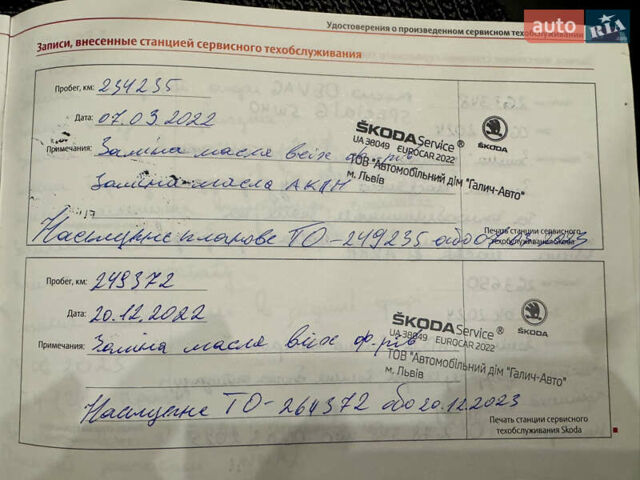 auto RIA
Удостоверения о произведенном сервисном техобслуживании
Записи, внесенные станцией сервисного техобслуживания
Пробег, км: 234235
Дата: 07.03.2022
Примечания: Заміна масла всіх ф-рів
Заміна масла АКПП
ŠKODA Service
UA 38049 EUROCAR 2022
ТОВ "Автомобільний дім "Галич-Авто"
м. Львів
Наступне планове ТО-249235 або 07.03.2023
Печать станции сервисного
техобслуживания Škoda
Пробег, км: 249372
Дата: 20.12.2022
Примечания: Заміна масла всіх ф-рів
ŠKODA Service
UA 38049 EUROCAR 2022
ТОВ "Автомобільний дім "Галич-Авто"
м. Львів
Наступне ТО-264372 або 20.12.2023
Печать станции сервисного
техобслуживания Skoda